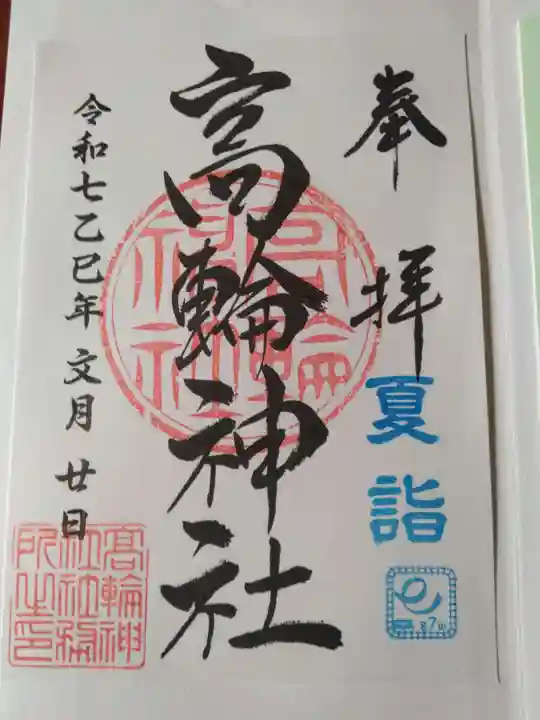 奉拝
夏詣
高輪神社
令和七乙巳年 文月 廿日
高輪神
社社務
所之印